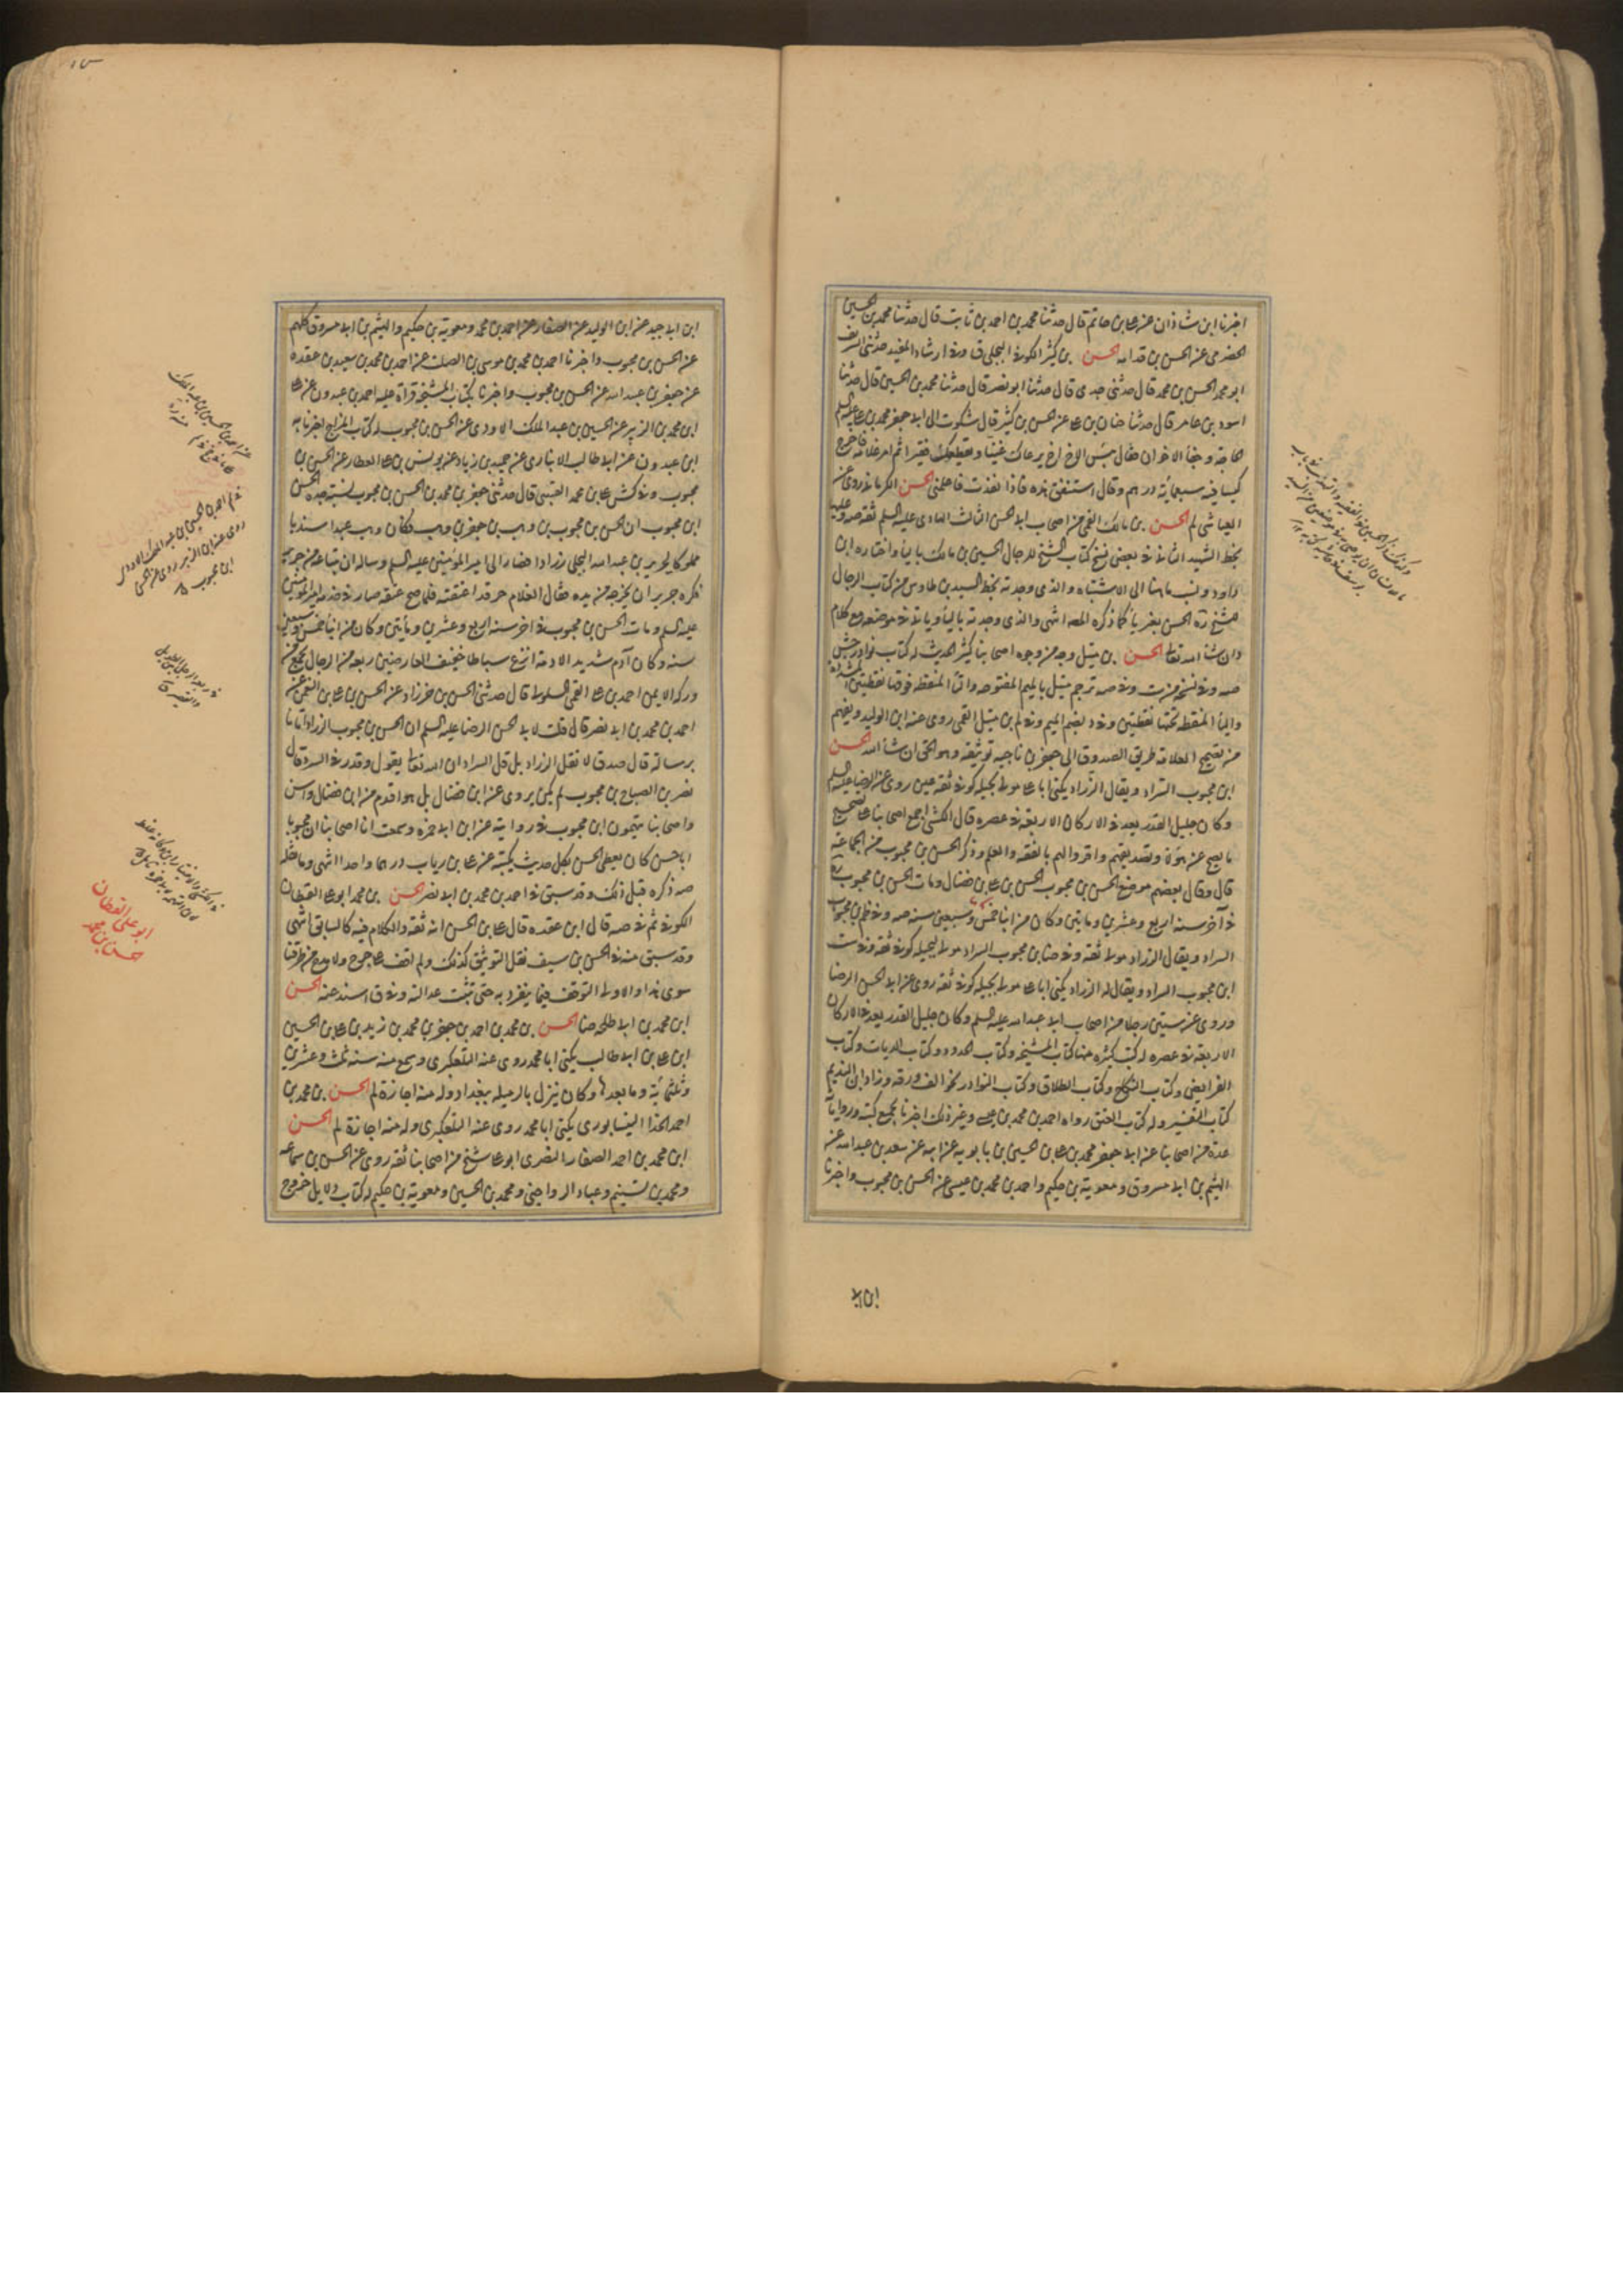 اخبرنا ابن شاذان عن علي بن حاتم قال حدثنا محمد بن احمد بن ثابت قال حدثنا محمد بن الحسين
الحضرمي عن الحسن بن قدامه الحسن بن كثير الكوفي البجلي ق وفي ارشاد المفيد حدثني الشريف
ابو محمد الحسن بن محمد قال حدثني جدي قال حدثنا ابو نصر قال حدثنا محمد بن الحسين قال حدثنا
اسود بن عامر قال حدثنا حنان بن علي عن الحسن بن كثير قال شكوت الى ابي جعفر محمد بن علي عليه السلم
الحاجة وجفا الاخوان فقال بئس الاخ اخ يرعاك غنيا ويقطعك فقيرا ثم امر غلامه فاخرج
كيسا فيه سبعمائة درهم وقال استنفق هذه فاذا نفذت فاعلمني الحسن الكرماني روى عنه
العياشي لم الحسن بن مالك القمي من اصحاب ابي الحسن الثالث الهادي عليه السلم ثقه صه
بخط الشهيد الثاني في بعض نسخ كتاب الشيخ للرجال الحسين بن مالك بالياء واختاره ابن
داود ونسب ما هنا الى الاشتباه والذي وجدته بخط السيد بن طاوس من كتاب الرجال
للشيخ ره الحسن بغير ياء كما ذكره المصـ انتهى والذي وجدته بالياء وياتي في موضعه مع كلام
ان شا الله تعالى الحسن بن متيل وجه من وجوه اصحابنا كثير الحديث له كتاب نوادر جش
صه وفي نسخه من ست وفي صه ترجم متيل بالميم المفتوحه والتا المنقطه فوقها نقطتين المشددة
واليا المنقطه تحتها نقطتين وفي د بضم الميم وفي لم بن متيل القمي روى عنه ابن الوليد ويفهم
من تصحيح العلامة طريق الصدوق الى جعفر بن ناجيه توثيقه وهو الحق ان شا الله الحسن
ابن محبوب السراد ويقال الزراد يكنى ابا علي مولى بجيله كوفي ثقه عين روى عن الرضا عليه السلم
وكان جليل القدر يعد في الاركان الاربعة في عصره قال الكشي اجمع اصحابنا على تصحيح
ما يصح عن هؤلاء وتصديقهم واقروا لهم بالفقه والعلم وذكر الحسن بن محبوب من الجماعة
قال وقال بعضهم موضع الحسن بن محبوب الحسن بن علي بن فضال ومات الحسن بن محبوب ره
في آخر سنه اربع وعشرين ومايتين وكان من ابنا خمس وسبعين سنه صه وفي ظم بن محبوب
السراد ويقال الزراد مولى ثقه وفي ضا بن محبوب السراد مولى لبجيله كوفي ثقه وفي ست
ابن محبوب السراد ويقال له الزراد يكنى ابا علي مولى بجيله كوفي ثقه روى عن ابي الحسن الرضا
وروى عن ستين رجلا من اصحاب ابي عبد الله عليه السلم وكان جليل القدر يعد في الاركان
الاربعة في عصره له كتب كثيره منها كتاب المشيخه وكتاب الحدود وكتاب الديات وكتاب
الفرايض وكتاب النكاح وكتاب الطلاق وكتاب النوادر نحو الف ورقه وزاد ابن النديم
كتاب التفسير وله كتاب العتق رواه احمد بن محمد بن عيسى وغير ذلك اخبرنا بجميع كتبه ورواياته
عدة من اصحابنا عن ابي جعفر محمد بن علي بن الحسين بن بابويه عن ابيه عن سعد بن عبد الله عن
الهيثم بن ابي مسروق ومعوية بن حكيم واحمد بن محمد بن عيسى عن الحسن بن محبوب واخبرنا
ابن ابي
ابن ابي جيد عن ابن الوليد عن الصفار عن احمد بن محمد ومعوية بن حكيم والهيثم بن ابي مسروق كلهم
عن الحسن بن محبوب واخبرنا احمد بن محمد بن موسى بن الصلت عن احمد بن محمد بن سعيد بن عقده
عن جعفر بن عبد الله عن الحسن بن محبوب واخبرنا بكتاب المشيخه قراة عليه احمد بن عبدون عن علي
ابن محمد بن الزبير عن الحسين بن عبد الملك الاودي عن الحسن بن محبوب له كتاب المزاح اخبرنا به
ابن عبدون عن ابي طالب الانباري عن حميد بن زياد عن يونس بن علي العطار عن الحسن بن
محبوب وفي كش علي بن محمد القتيبي قال حدثني جعفر بن محمد بن الحسن بن محبوب نسبة جده الحسن
ابن محبوب ان الحسن بن محبوب بن وهب بن جعفر بن وهب وكان وهب عبدا سنديا
مملوكا لجرير بن عبد الله البجلي زرادا فصار الى امير المؤمنين عليه السلم وساله ان يبتاعه من جرير
فكره جرير ان يخرجه من يده فقال الغلام حر قد اعتقته فلما صح عتقه صار في خدمه امير المؤمنين
عليه السلم ومات الحسن بن محبوب في اخر سنه اربع وعشرين ومايتين وكان من ابنا خمس وسبعين
سنه وكان آدم شديد الادمة انزع سباطا خفيف العارضين ربعه من الرجال يجمع من
وركه الايمن احمد بن علي القمي السلولي قال حدثني الحسن بن خرزاد عن الحسن بن علي بن النعمن عن
احمد بن محمد بن ابي نصر قال قلت لابي الحسن الرضا عليه السلم ان الحسن بن محبوب الزراد اتانا
برسالة قال صدق لا تقل الزراد بل قل السراد ان الله تعالى يقول وقدر في السرد قال
نصر بن الصباح بن محبوب لم يكن يروى عن ابن فضال بل هو اقدم من ابن فضال واسن
واصحابنا يتهمون ابن محبوب في روايته عن ابن ابي حمزه وسمعت انا اصحابنا ان محبوبا
ابا حسن كان يعطي الحسن بكل حديث يكتبه عن علي بن رياب درهما واحدا انتهى وما نقله
صه ذكره قبل ذلك وقد سبق في احمد بن محمد بن ابي نصر الحسن بن محمد ابو علي القطان
الكوفي ثم في صه قال ابن عقده قال علي بن الحسن انه ثقه والكلام فيه كالسابق انتهى
وقد سبق منه في الحسن بن سيف نقل التوثيق كذلك ولم اقف على جرح ولا مدح من طرقنا
سوى هذا والاولى التوقف فيما ينفرد به حتى تثبت عدالته وفي ق اسند عنه الحسن
ابن محمد بن ابي طلحه ضا الحسن بن محمد بن احمد بن جعفر بن محمد بن زيد بن علي بن الحسين
ابن علي بن ابي طالب يكنى ابا محمد روى عنه التلعكبري وسمع منه سنه ثلث وعشرين
وثلثمائة وما بعدها وكان ينزل بالرميله ببغداد وله منه اجازة لم الحسن بن محمد بن
احمد الحذا النيسابوري يكنى ابا محمد روى عنه التلعكبري وله منه اجازة لم الحسن
ابن محمد بن احمد الصفار البصري ابو علي شيخ من اصحابنا ثقه روى عن الحسن بن سماعه
ومحمد بن تسنيم وعباد الرواجني ومحمد بن الحسين ومعوية بن حكيم له كتاب دلايل خروج
في لم احمد بن الحسين بن عبد الملك الاودي
روى عنه ابن الزبير روى عن الحسن
ابن محبوب
ابو علي القطان
حسن بن محمد